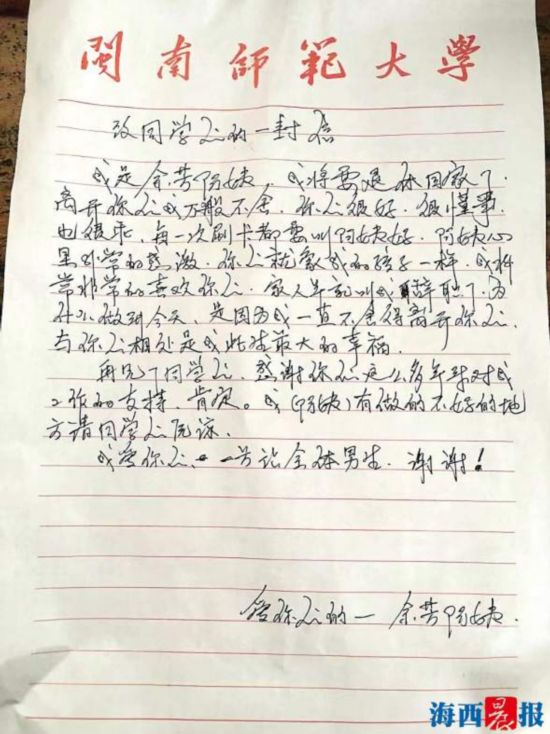 閩南師範大學
致同学们的一封信
我是余芳阿姨，我将要退休回家了，
离开你们我万般不舍．你们很好．很懂事
也很乖，每一次刷卡都要叫阿姨好．阿姨心
里非常的感激．你们就象我的孩子一样．我非
常非常的喜欢你们．家人早就叫我辞职了，为
什么做到今天，是因为我一直不舍得离开你们，
与你们相处是我此生最大的幸福．
再见了同学们．感谢你们这么多年来对我
工作的支持．肯定。我（阿姨）有做的不好的地
方请同学们原谅．
我爱你们．一号论全体男生．谢谢！
爱你们的一 余芳阿姨．
海西晨报